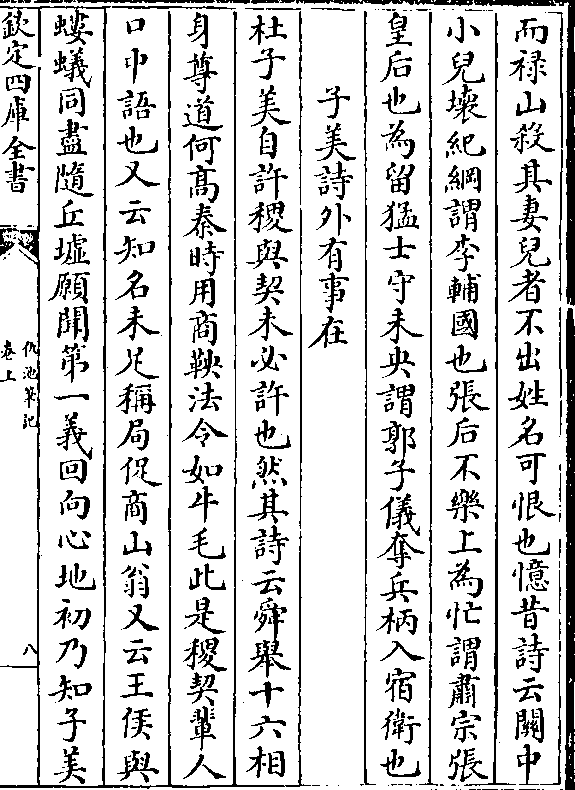 而禄山殺其妻兒者不出姓名可恨也憶昔詩云關中
小兒壞紀綱謂李輔國也張后不樂上為忙謂肅宗張
皇后也為留猛士守未央謂郭子儀奪兵柄入宿衛也
子美詩外有事在
杜子美自許稷與契未必許也然其詩云舜舉十六相
身尊道何髙秦時用商鞅法令如牛毛此是稷契輩人
口中語也又云知名未足稱局促商山翁又云王侯與
螻蟻同盡隨丘墟願聞第一義回向心地初乃知子美
欽定四庫全書
仇池筆記
卷上
八